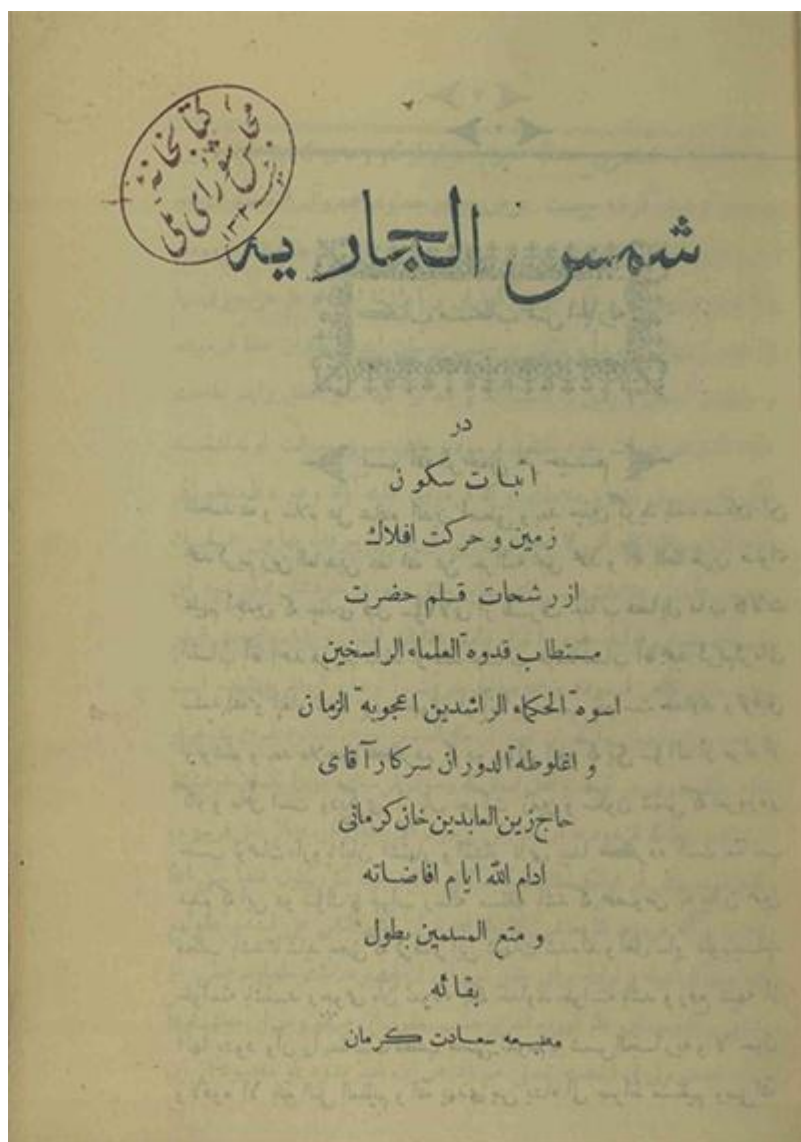 کتابخانه
مجلس شورای ملی
۱۳۰۲
شمس الجاریه
در
اثبات سکون
زمین و حرکت افلاک
از رشحات قلم حضرت
مستطاب قدوة العلماء الراسخین
اسوة الحکماء الراشدین اعجوبة الزمان
و اغلوطة الدوران سرکار آقای
حاج زین العابدین خان کرمانی
ادام الله ایام افاضاته
و متع المسلمین بطول
بقائه
مطبعه سعادت کرمان